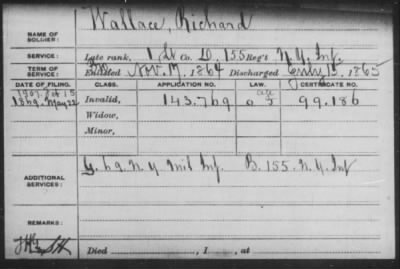 Wallace, Richard
NAME OF SOLDIER:
SERVICE: Late rank, 1 Lt Co. D, 155 Reg't N.Y. Inf.
TERM OF SERVICE: Enlisted Nov. 17, 1864 Discharged July 15, 1865
DATE OF FILING. CLASS. APPLICATION NO. LAW. CERTIFICATE NO.
1869. May 22 Invalid, 143.769 99.186
Widow,
Minor,
ADDITIONAL SERVICES: G. 69. N.Y. Mil Inf. B. 155. N.Y. Inf
REMARKS:
Died , 1 , at